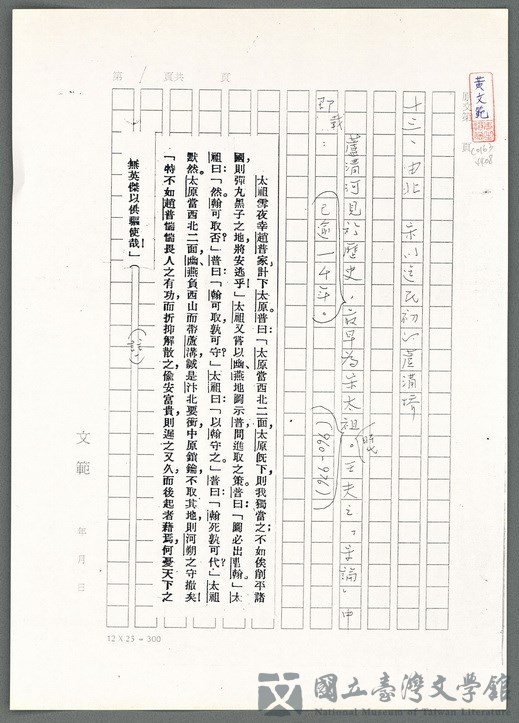 第1頁共 頁
黃文範
十三、由北宋以迄民初的蘆溝橋
蘆溝河見於歷史，最早為宋太祖時代(960-976)。王夫之「宋論」中
已逾一千年。
即載：
太祖雪夜幸趙普家，計下太原。普曰：「太原當西北二面，太原既下，則我獨當之；不如俟削平諸
國，則彈丸黑子之地，將安逃乎」太祖又嘗以幽、燕地圖示普，問進取之策。普曰：「圖必出曹翰。」太
祖曰：「然，翰可取否？」普曰：「翰可取，孰可守？」太祖曰：「以翰守之。」普曰：「翰死孰可代？」太祖
默然。太原當西北二面，幽、燕負西山而帶蘆溝，誠是汴北要衝，中原鎖鑰。不取其地，則河朔之守撤矣！
「特不如趙普惴惴畏人之有功，而折抑解散之，偷安富貴，則遲之又久，而後起者藉焉，何憂天下之
無英傑以供驅使哉！」
(註)
文範 年 月 日
12 X 25 = 300
國立臺灣文學館
National Museum of Taiwan Literature